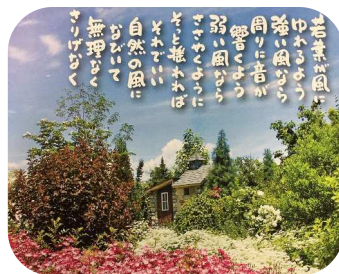 若葉が風に
ゆれるよう
強い風なら
周りに音が
響くよう
弱い風なら
ささやくように
そっと揺れれば
それでいい
自然の風に
なびいて
無理なく
さりげなく